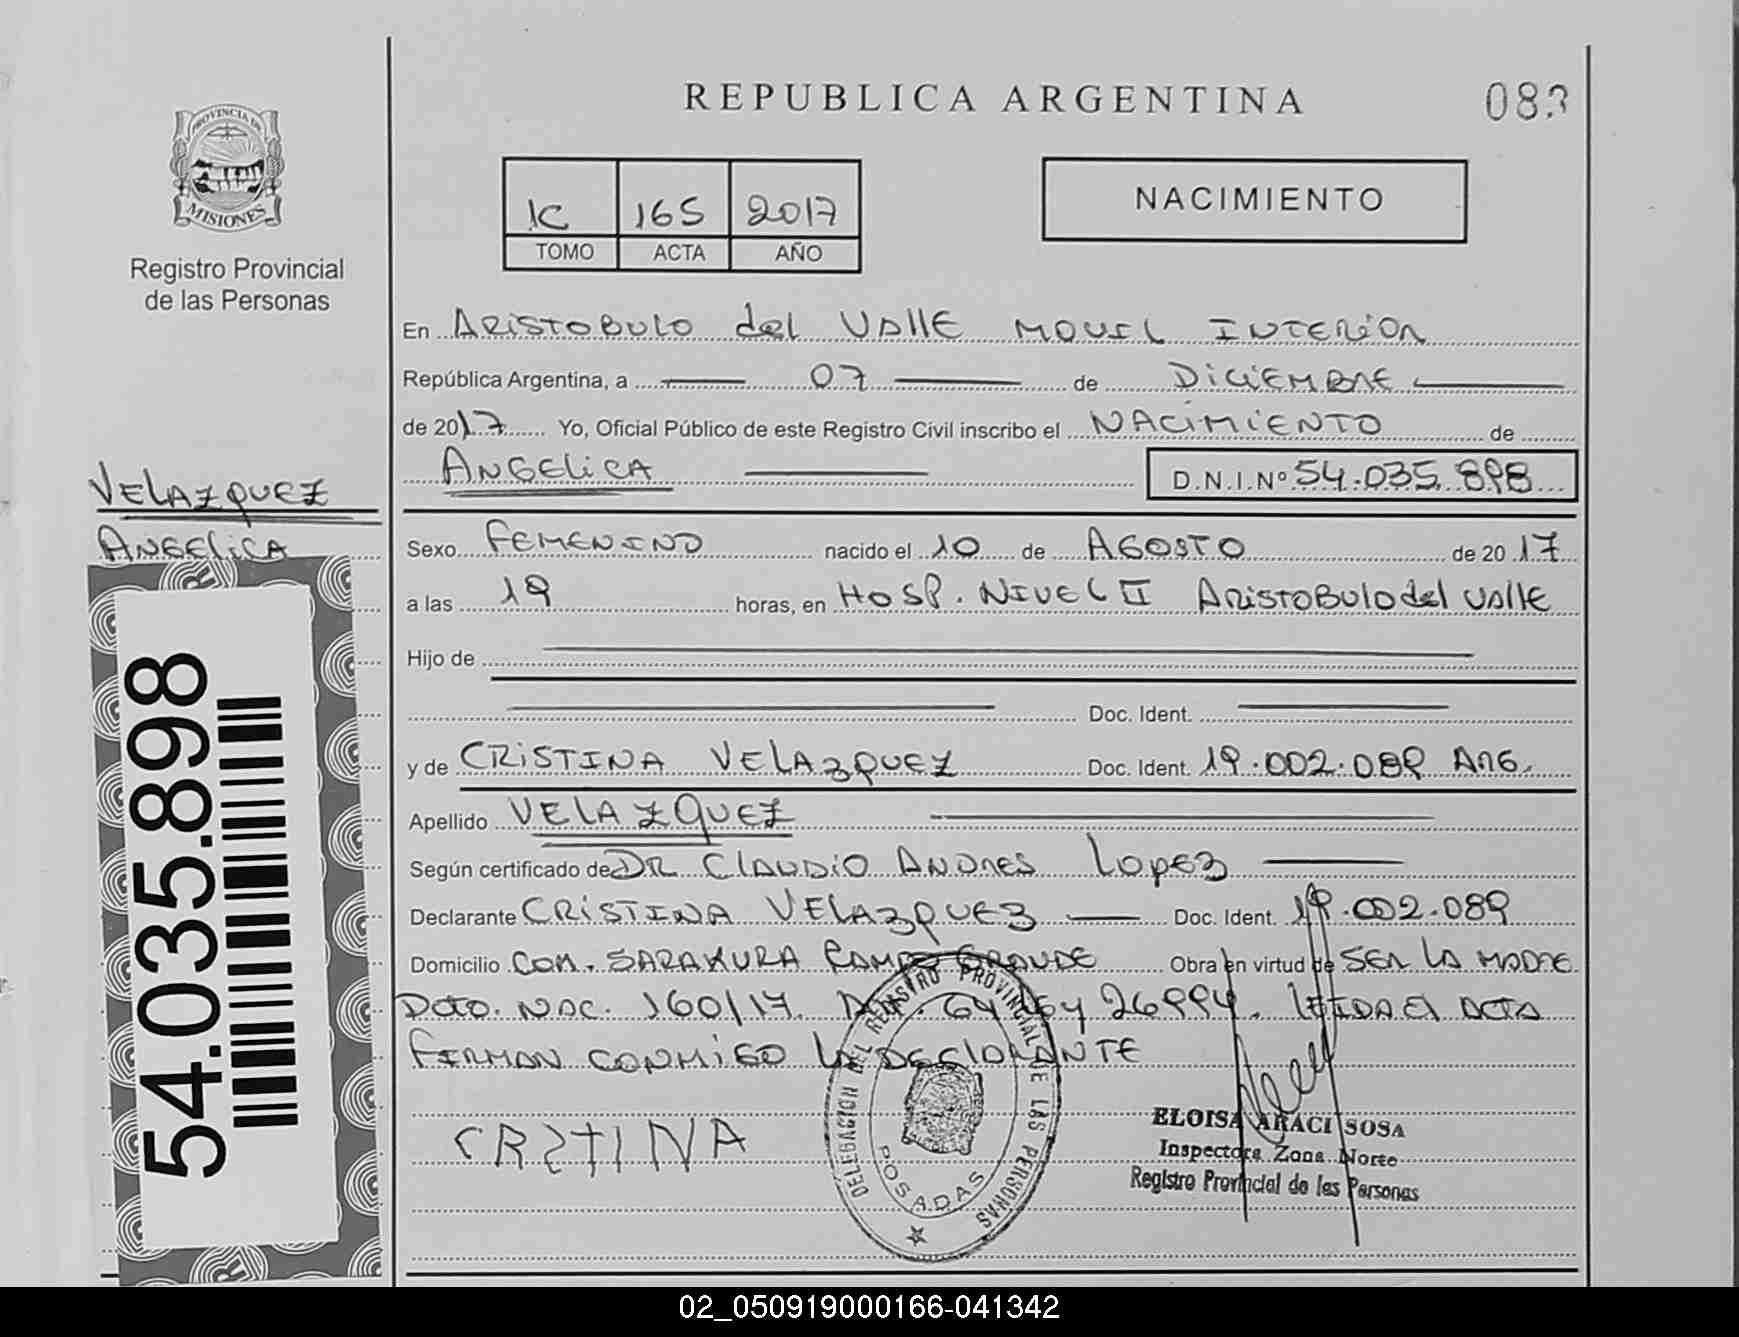 PROVINCIA DE
MISIONES
Registro Provincial
de las Personas
REPUBLICA ARGENTINA
083
1C 165 2017
TOMO ACTA AÑO
NACIMIENTO
En ARISTOBULO del VALLE MOVIL INTERIOR
República Argentina, a 07 de DICIEMBRE
de 2017 Yo, Oficial Público de este Registro Civil inscribo el NACIMIENTO de
ANGELICA D.N.I.Nº 54.035.898
VELAZQUEZ
ANGELICA
54.035.898
Sexo FEMENINO nacido el 10 de AGOSTO de 2017
a las 19 horas, en HOSP. NIVEL II ARISTOBULO del VALLE
Hijo de
Doc. Ident.
y de CRISTINA VELAZQUEZ Doc. Ident. 19.002.089 ARG.
Apellido VELAZQUEZ
Según certificado de DR CLAUDIO ANDRES LOPEZ
Declarante CRISTINA VELAZQUEZ Doc. Ident. 19.002.089
Domicilio COM. SARAKURA RAMOS GRANDE Obra en virtud de SER LA MADRE
Dcto. NAC. 160/17. 64 26994. LEIDA EL ACTA
FIRMAN CONMIGO LA DECLARANTE
CRSTINA
DELEGACION DEL REGISTRO PROVINCIAL DE LAS PERSONAS
POSADAS
ELOISA ARACI SOSA
Inspectora Zona Norte
Registro Provincial de las Personas
02_050919000166-041342